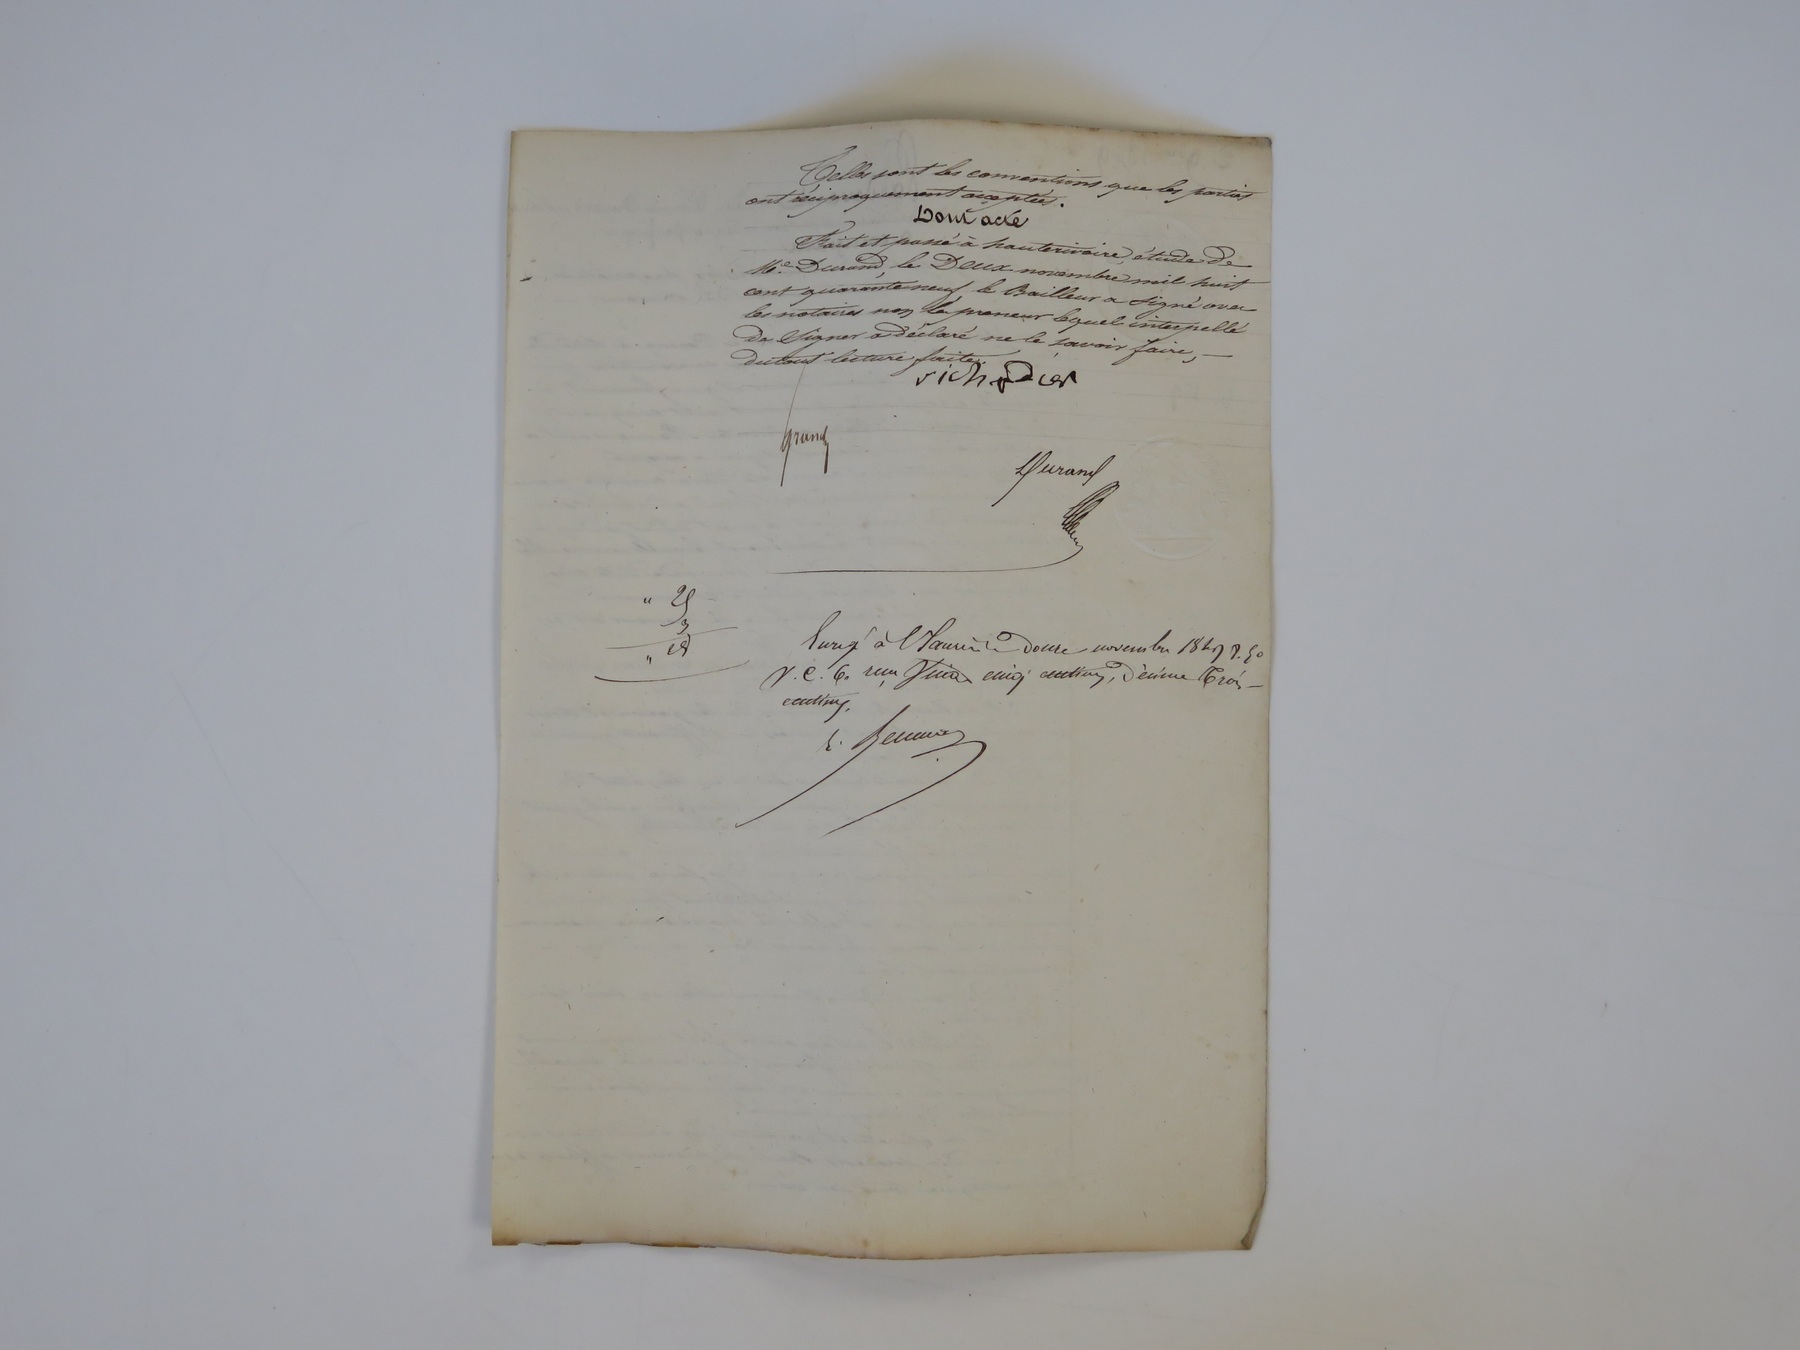 Telles sont les conventions que les parties
ont réciproquement acceptées.
Dont acte
Fait et passé à hauterivoire, étude de
Me. Durand, le Deux novembre mil huit
cent quarante neuf le Bailleur a signé avec
les notaires non le preneur lequel interpellé
de Signer a déclaré ne le savoir faire, —
du tout lecture faite.
richardier
grand
Durand
" 25
3
" 28
à douze novembre
V. C. 6. reçu vingt cinq centimes, décime Trois —
centimes.